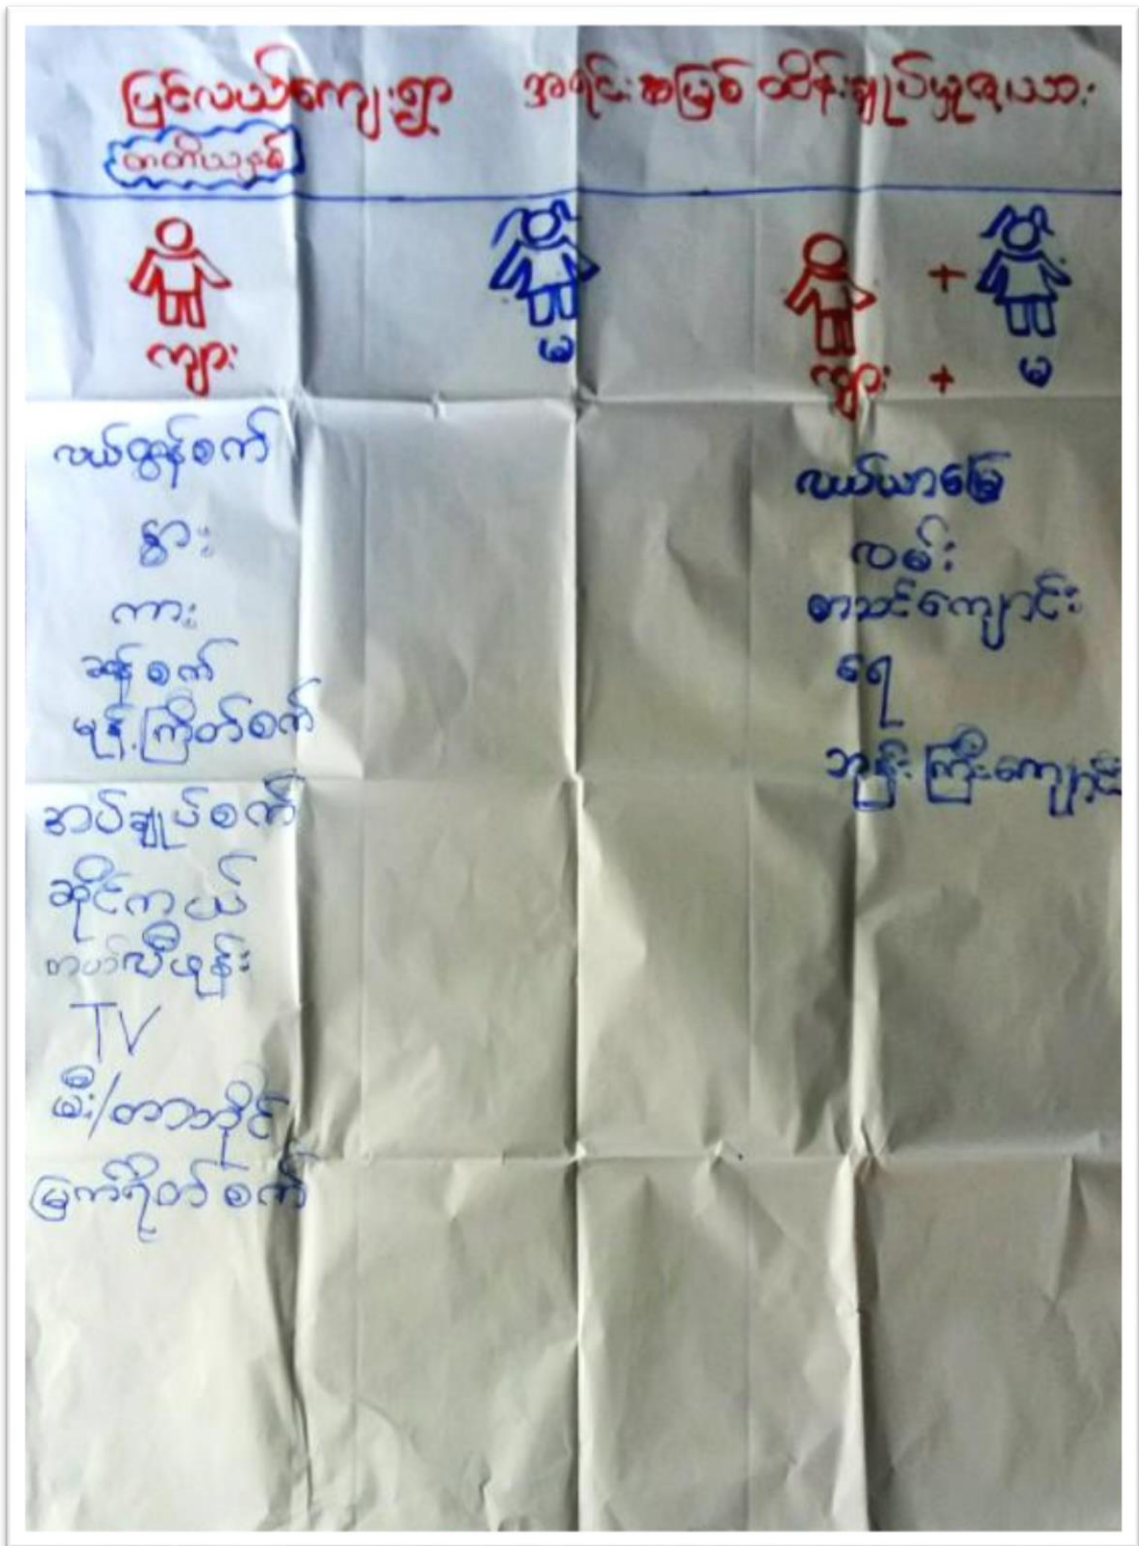 ပြင်လယ်ကျေးရွာ အရင်းအမြစ် ထိန်းချုပ်မှုဇယား
တတိယနှစ်
ကျား မ ကျား + မ
+
လယ်ထွန်စက်
နွား
ကား
ဆန်စက်
မုန့်ကြိတ်စက်
အပ်ချုပ်စက်
ဆိုင်ကယ်
တယ်လီဖုန်း
TV
မီး/တာဘိုင်
မြက်ရိတ်စက်
လယ်ယာမြေ
လမ်း
စာသင်ကျောင်း
ရေ
ဘုန်းကြီးကျောင်း